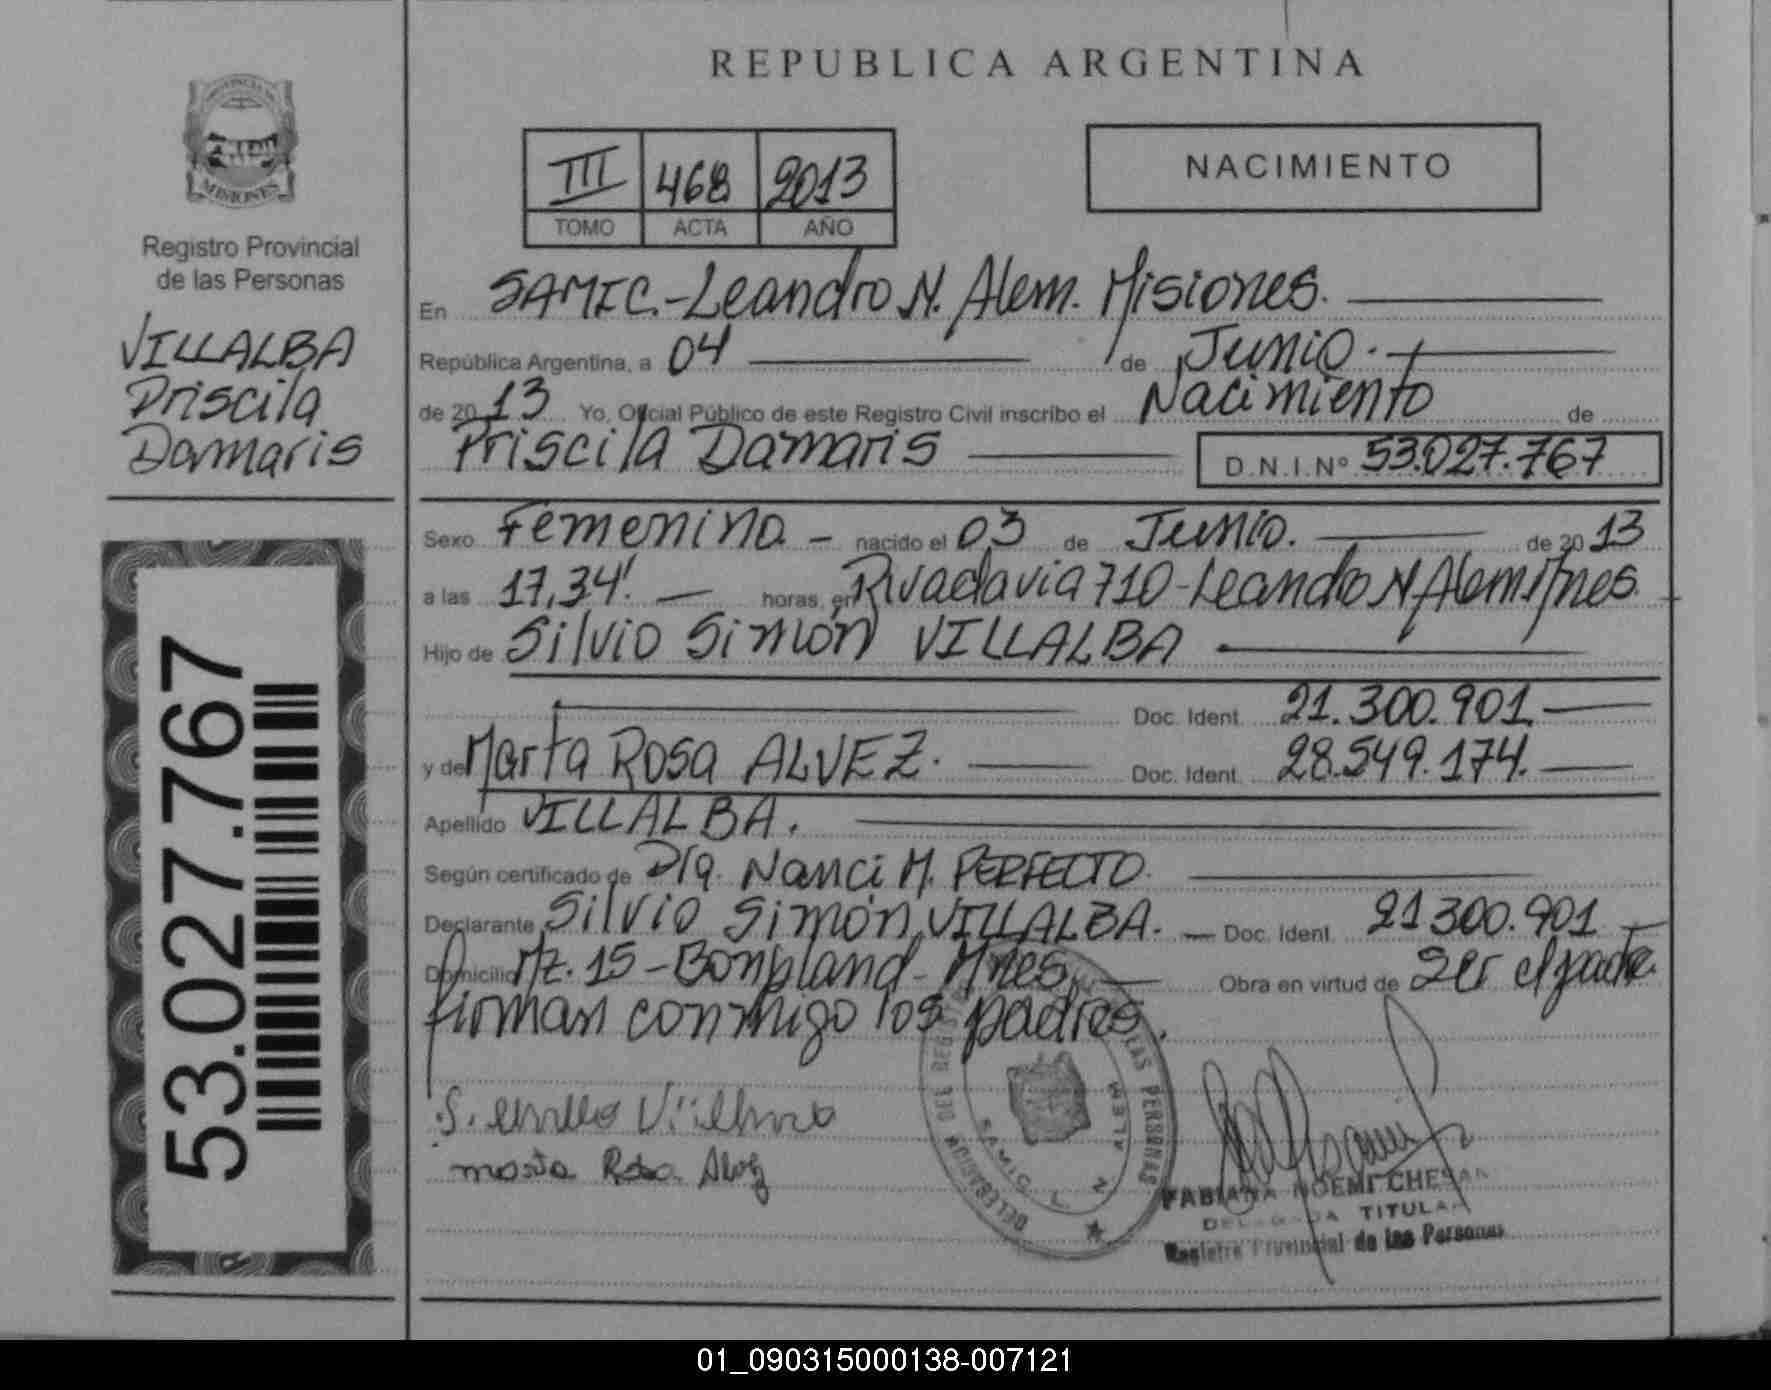 REPUBLICA ARGENTINA
PROVINCIA DE
MISIONES
Registro Provincial
de las Personas
VILLALBA
Priscila
Damaris
53.027.767
III 468 2013
TOMO ACTA AÑO
NACIMIENTO
En SAMIC.-Leandro N. Alem. Misiones.
República Argentina, a 04 de Junio.
de 2013 Yo, Oficial Público de este Registro Civil inscribo el Nacimiento de
Priscila Damaris D.N.I.Nº 53.027.767
Sexo Femenino - nacido el 03 de Junio. de 2013
a las 17,34'. horas, en Rivadavia 710-Leandro N Alem Mnes.
Hijo de Silvio Simón VILLALBA
Doc. Ident. 21.300.901
y de Marta Rosa ALVEZ. Doc. Ident. 28.549.174.
Apellido VILLALBA.
Según certificado de Nanci M. PERFECTO.
Declarante Silvio Simón VILLALBA. - Doc. Ident. 21300.901
Domicilio Mz. 15-Bonpland-Mnes, Obra en virtud de ser el padre.
firman conmigo los padres.
marta Rosa Alvez
DELEGACION DEL REGISTRO DE LAS PERSONAS
SAMIC L. N. ALEM
FABIANA NOEMI CHESAN
DELEGADA TITULAR
Registro Provincial de las Personas
01_090315000138-007121